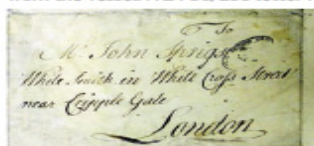 To
Mr. John Sprigs
White Smith in White Cross Street
near Cripple Gate
London